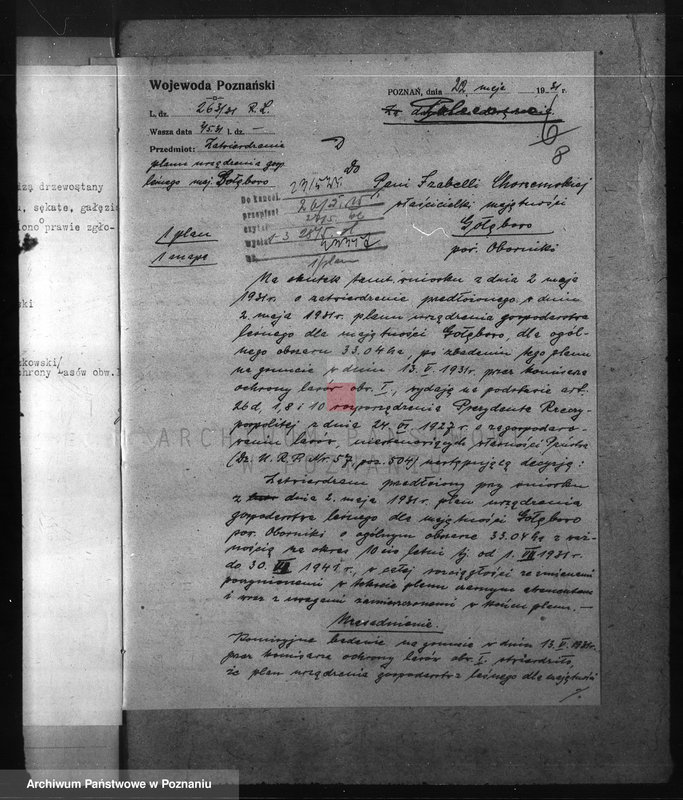 Wojewoda Poznański
POZNAŃ, dnia 22 maja 1931 r.
L. dz. 263/31 R.L.
Wasza data 7/5.31 l. dz. —
Przedmiot: Zatwierdzenie
planu urządzenia gosp.
leśnego maj. Gołębowo
6
8
Do
Pani Izabelli Chosłowskiej
właścicielki majętności
Gołębowo
pow. Oborniki
Do kancel.
przepisał
czytał
wysłano
1 plan
1 mapa
1 plan
Na skutek tamt. wniosku z dnia 2 maja
1931 r. o zatwierdzenie przedłożonego w dniu
2. maja 1931 r. planu urządzenia gospodarstwa
leśnego dla majętności Gołębowo, dla ogól-
nego obszaru 33.04 ha, po zbadaniu tego planu
na gruncie w dniu 13. V. 1931 r. przez komisarza
ochrony lasów obw. I, wydaję na podstawie art.
26 d, 1, 8 i 10 rozporządzenia Prezydenta Rzeczy-
pospolitej z dnia 24. VI. 1927 r. o zagospodaro-
waniu lasów, niestanowiących własności Państwa
(Dz. U. R. P. Nr. 57, poz. 504) następującą decyzję:
Zatwierdzam przedłożony przy wniosku
z dnia 2. maja 1931 r. plan urządzenia
gospodarstwa leśnego dla majętności Gołębowo
pow. Oborniki o ogólnym obszarze 33.04 ha z waż-
nością na okres 10 cio letni tj. od 1. VII 1931 r.
do 30. VI 1941 r., w całej rozciągłości ze zmianami
poczynionymi w tekście planu czarnym atramentem
i wraz z uwagami zamieszczonymi w końcu planu. —
Uzasadnienie.
Komisyjne badanie na gruncie w dniu 13. V. 1931 r.
przez komisarza ochrony lasów obw. I. stwierdziło,
że plan urządzenia gospodarstwa leśnego dla majętności
izą drzewostany
, sękate, gałęzis
ono prawie zgło-
ski
zkowski/
chrony Lasów obw.
ARCHIWUM PAŃSTWOWE
W POZNANIU
Archiwum Państwowe w Poznaniu